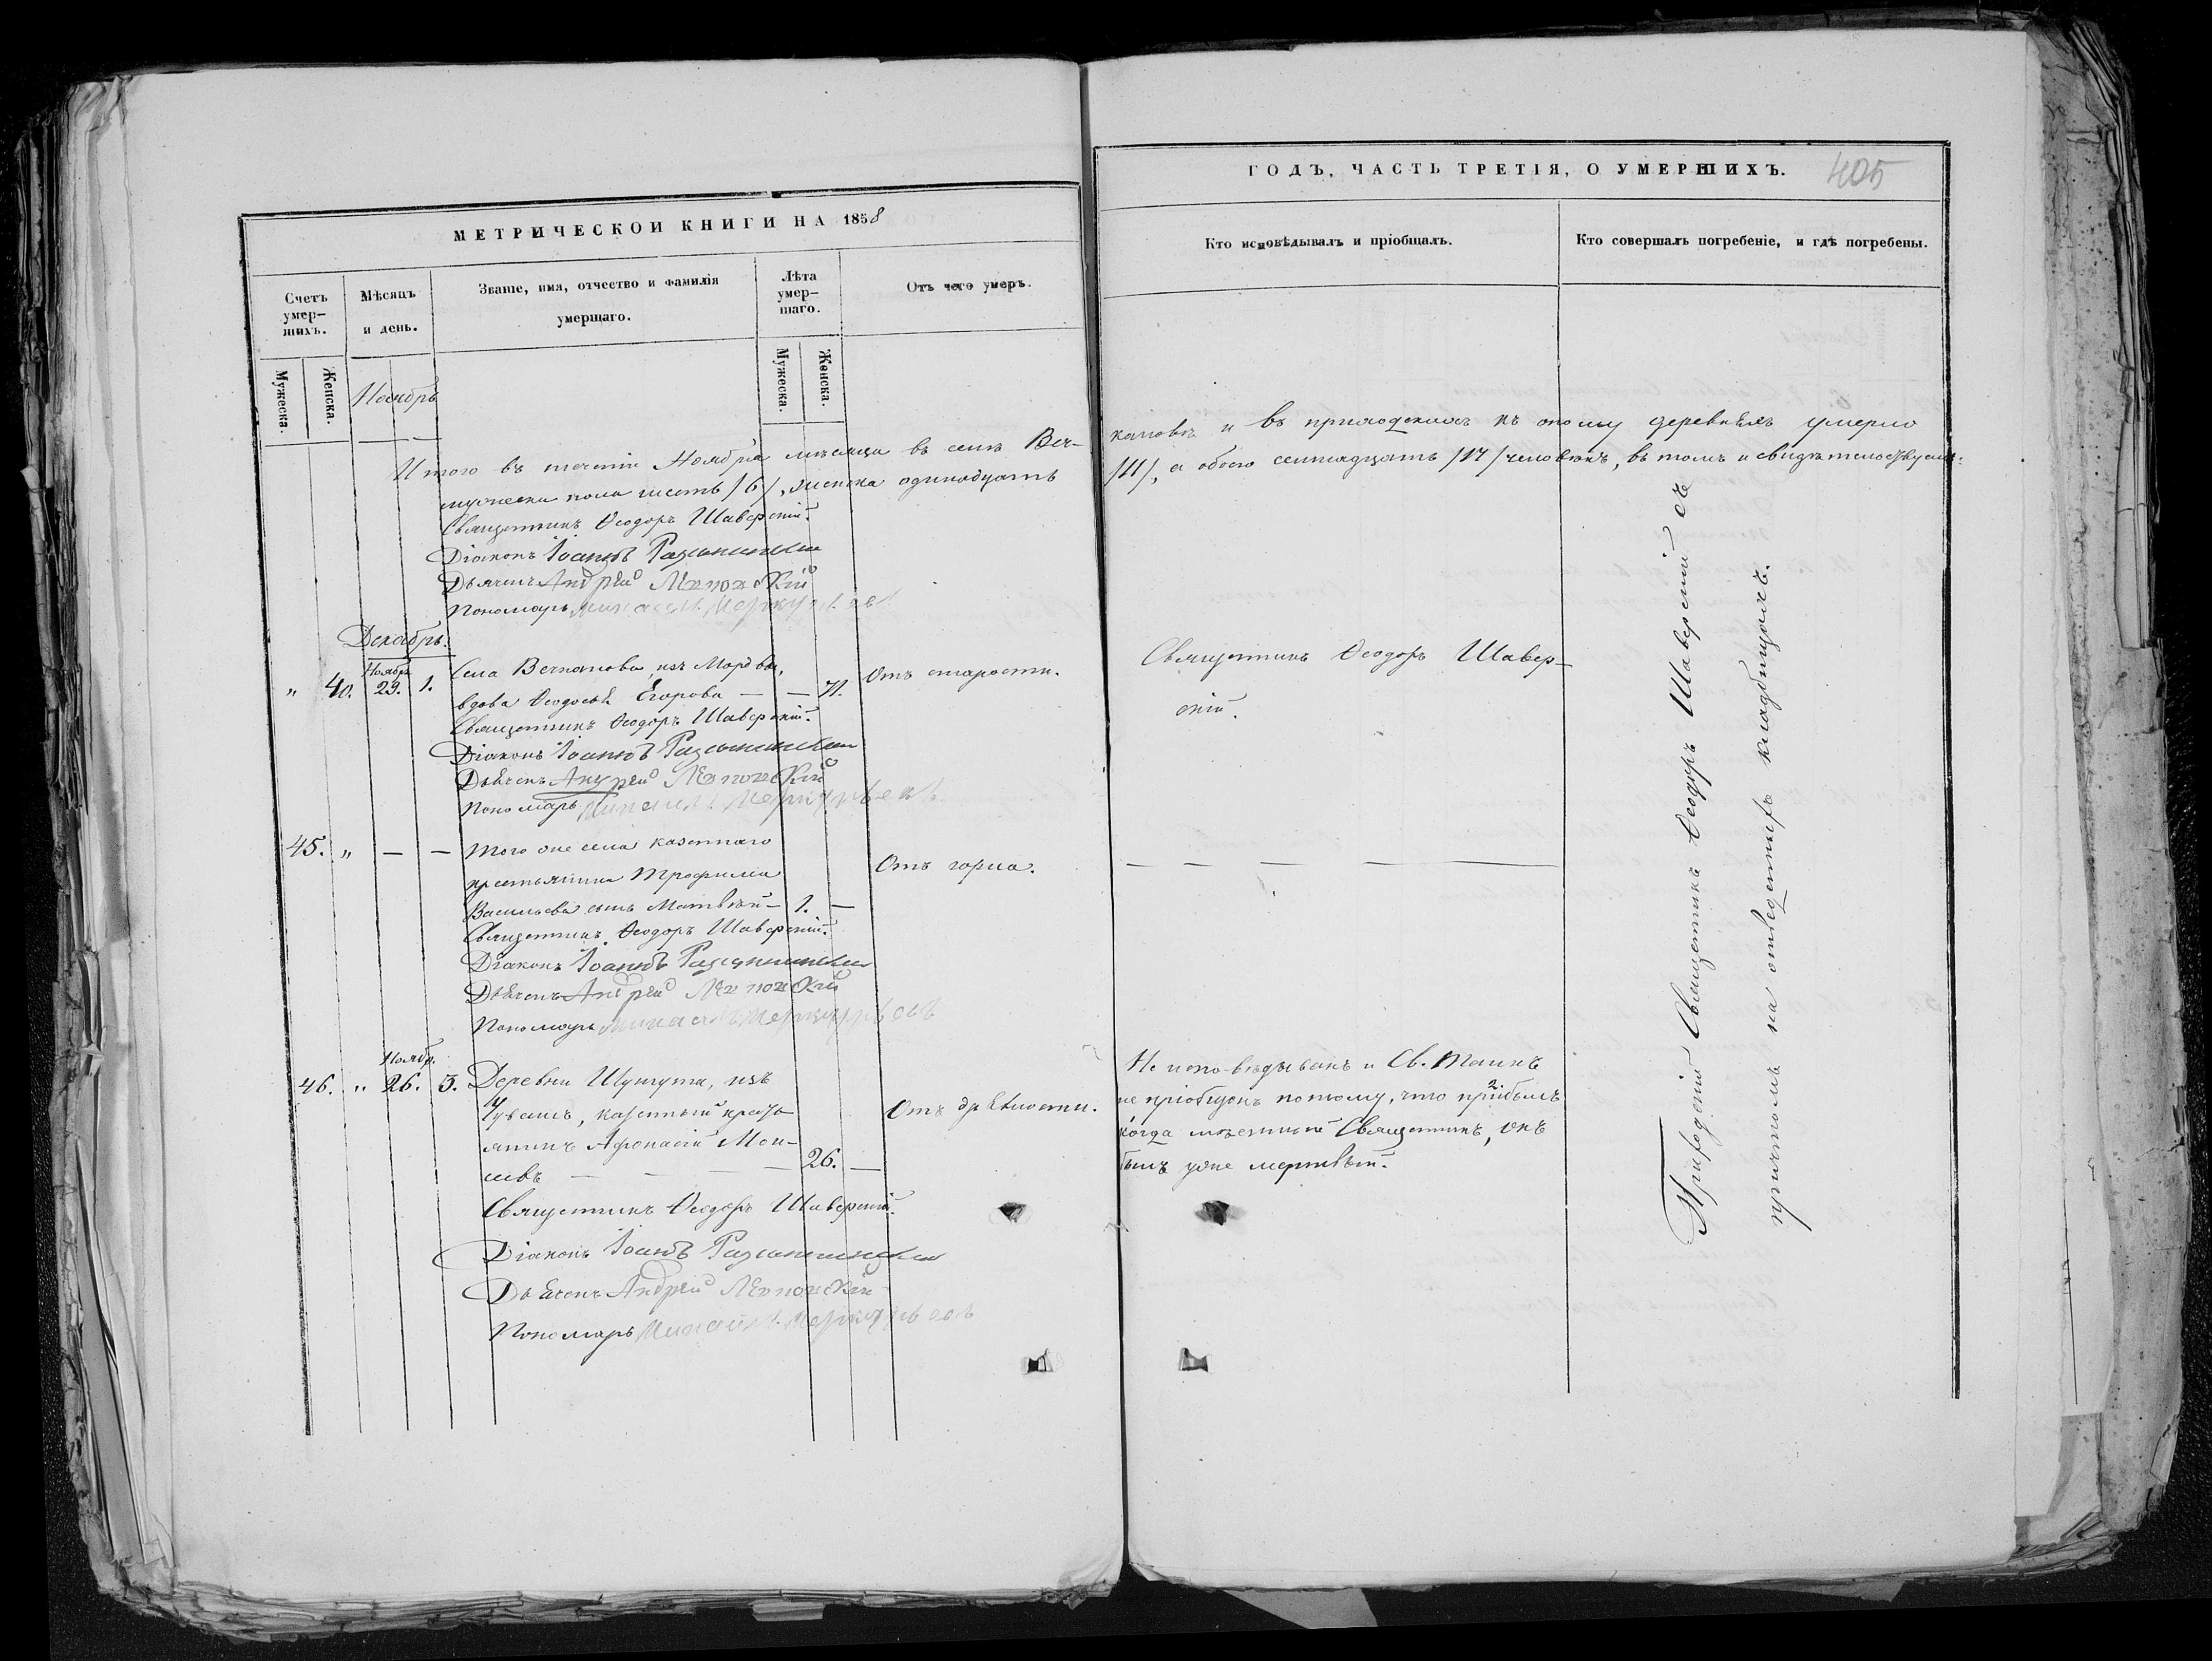 МЕТРИЧЕСКОЙ КНИГИ НА 1858
Счетъ умер-шихъ.
Мѣсяцъ и день.
Званіе, имя, отчество и фамилія умершаго.
Лѣта умер-шаго.
Отъ чего умеръ.
Мужеска.
Женска.
Мужеска.
Женска.
Ноябрь
Итого въ теченіи Ноября мѣсяца въ селѣ Веч-
мужеска пола шесть /6/, женска одинадцать
Священникъ Ѳеодоръ Шаверскій.
Діаконъ Іоаннъ
Дьячекъ Андрей
Пономарь Михаилъ Меркурьевъ
Декабрь.
" 40. Ноябр. 29. 1. Села Вечканова, изъ Мордвы,
вдова Ѳеодосья Егорова — — 71. Отъ старости.
Священникъ Ѳеодоръ Шаверскій.
Діаконъ Іоаннъ
Дьячекъ Андрей
Пономарь Михаилъ Меркурьевъ
45. " — — Того же села казеннаго
крестьянина Трофима Отъ горла.
Васильева сынъ Матвѣй — 1. —
Священникъ Ѳеодоръ Шаверскій.
Діаконъ Іоаннъ
Дьячекъ Андрей
Пономарь Михаилъ Меркурьевъ
Ноябр.
46. " 26. 3. Деревни Шунгута, изъ
Чувашъ, казенный кресть-
янинъ Афонасій Мои- Отъ
севъ — — — — 26. —
Священникъ Ѳеодоръ Шаверскій.
Діаконъ Іоаннъ
Дьячекъ Андрей
Пономарь Михаилъ Меркурьевъ
ГОДЪ, ЧАСТЬ ТРЕТІЯ, О УМЕРШИХЪ.
405
Кто исповѣдывалъ и пріобщалъ.
Кто совершалъ погребеніе, и гдѣ погребены.
кановѣ и въ приходскихъ къ оному деревняхъ умерло
/11/, а обоего семнадцать /17/ человѣкъ, въ томъ и свидѣтельствуемъ.
Священникъ Ѳеодоръ Шавер-
скій.
— — — —
Не исповѣдыванъ и Св. Таинъ
не пріобщенъ потому, что прибылъ
когда мѣстный Священникъ, онъ
былъ уже мертвый.
Приходскій Священникъ Ѳеодоръ Шаверскій съ
причтомъ на отведенныхъ кладбищахъ.